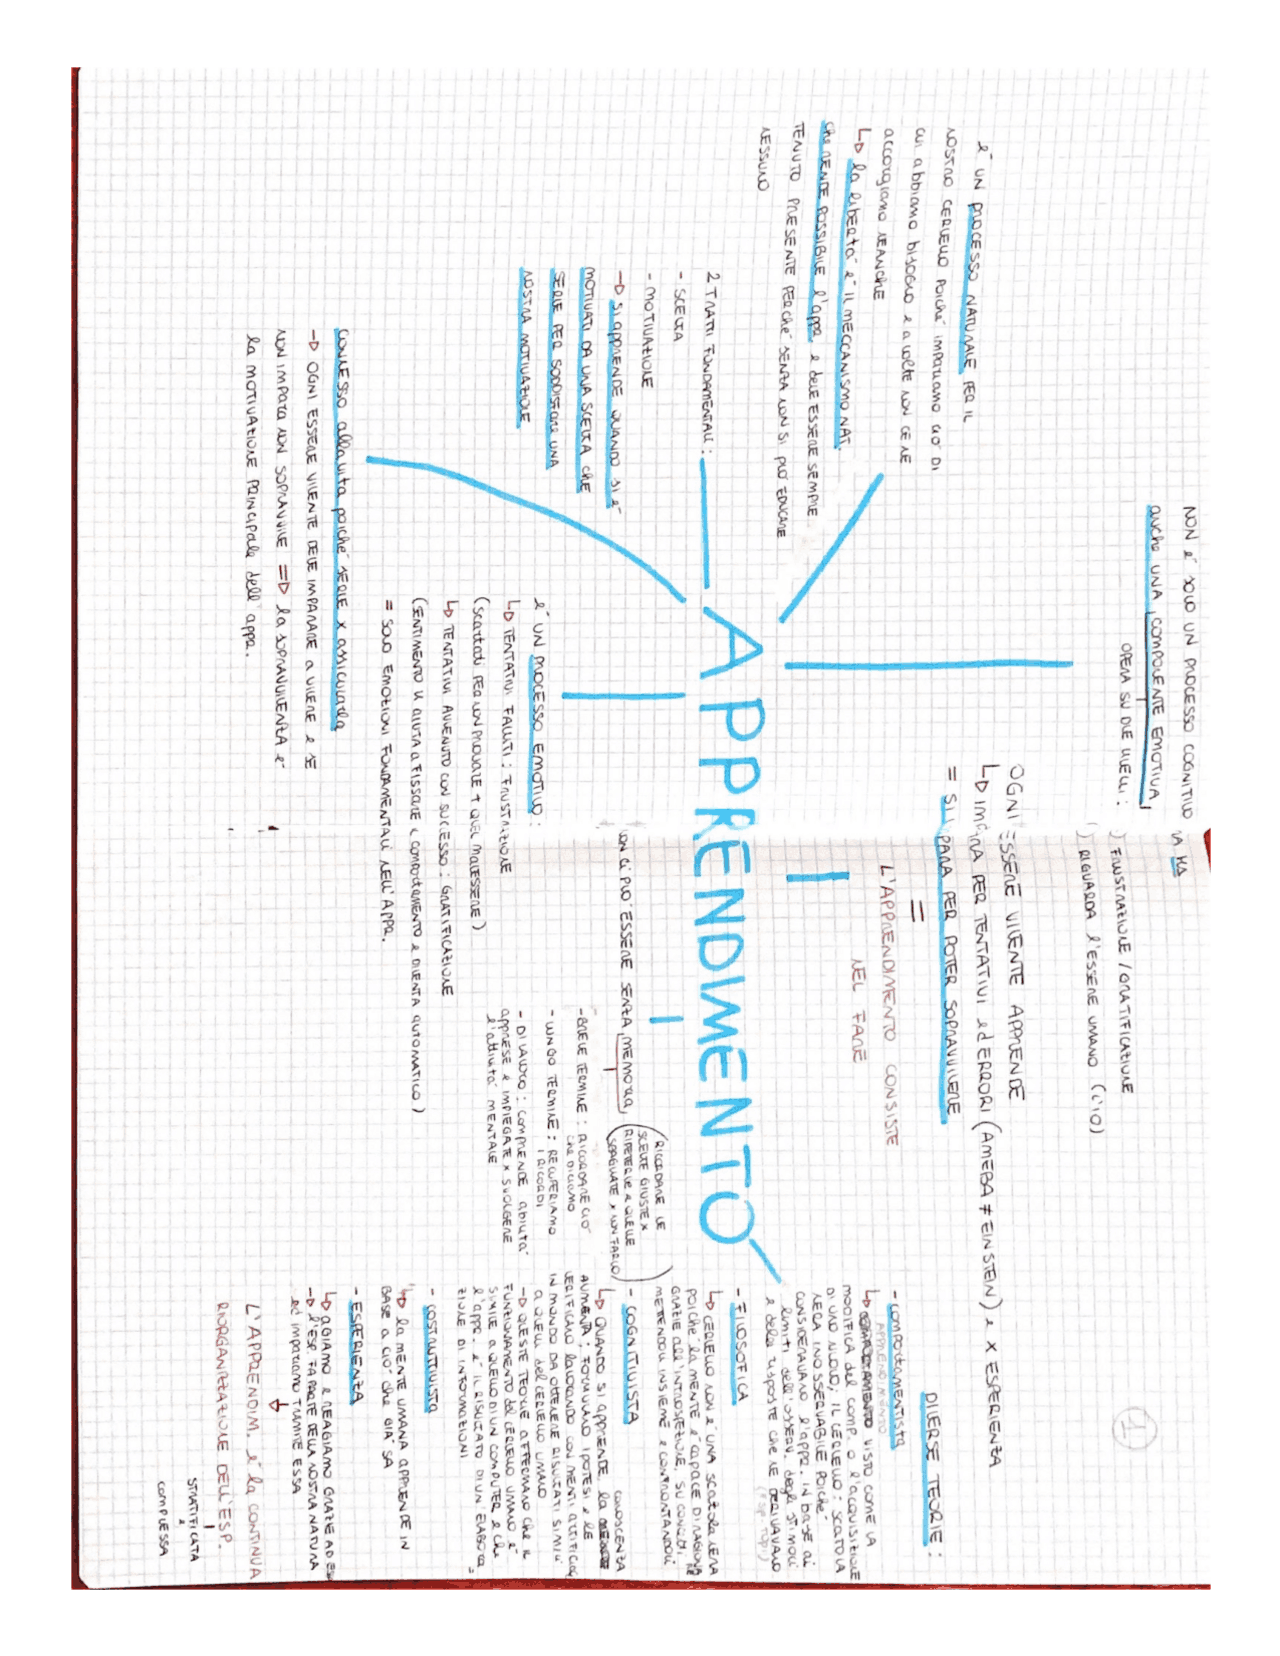 è UN PROCESSO NATURALE PER IL
NOSTRO CERVELLO POICHÉ IMPARIAMO CIÒ DI
CUI abbiamo bisogno e a volte non ce ne
accorgiamo NEANCHE
↳ la libertà è il MECCANISMO NAT.
che RENDE POSSIBILE l'appr. e deve ESSERE SEMPRE
TENUTO PRESENTE PERCHÉ SENZA NON SI PUÒ EDUCARE
NESSUNO
2 TRATTI FONDAMENTALI:
- SCELTA
- MOTIVAZIONE
→ si apprende quando si è
MOTIVATI DA UNA SCELTA che
SERVE PER SODDISFARE UNA
NOSTRA MOTIVAZIONE
CONNESSO alla vita poiché SERVE x assicurarla
→ OGNI ESSERE VIVENTE DEVE IMPARARE A VIVERE e SE
NON IMPARA NON SOPRAVVIVE ⇒ la SOPRAVVIVENZA è
la MOTIVAZIONE PRINCIPALE dell'appr.
NON è SOLO UN PROCESSO COGNITIVO MA HA
anche UNA COMPONENTE EMOTIVA
OPERA SU DUE LIVELLI:
) FRUSTRAZIONE / GRATIFICAZIONE
) RIGUARDA l'ESSERE UMANO (L'IO)
APPRENDIMENTO
è UN PROCESSO EMOTIVO:
↳ TENTATIVI FALLITI: FRUSTRAZIONE
(scartati PER NON PROVARE + QUEL MALESSERE)
↳ TENTATIVI AVVENUTO CON SUCCESSO: GRATIFICAZIONE
(SENTIMENTO ci AIUTA a FISSARE il COMPORTAMENTO e DIVENTA AUTOMATICO)
= SONO EMOZIONI FONDAMENTALI NELL'APPR.
OGNI ESSERE VIVENTE APPRENDE
↳ IMPARA PER TENTATIVI ed ERRORI (AMEBA ≠ EINSTEIN) e x ESPERIENZA
= SI IMPARA PER POTER SOPRAVVIVERE
=
L'APPRENDIMENTO CONSISTE
NEL FARE
NON CI PUÒ ESSERE SENZA MEMORIA
(RICORDARE LE
SCELTE GIUSTE x
RIPETERLE e QUELLE
SBAGLIATE x NON FARLO)
- BREVE TERMINE: RICORDARE CIÒ
che DICIAMO
- LUNGO TERMINE: RECUPERIAMO
I RICORDI
- DI LAVORO: COMPRENDE abilità
APPRESE e IMPIEGATE x SVOLGERE
l'attività MENTALE
1
DIVERSE TEORIE:
- comportamentista
APPRENDIMENTO
↳ VISTO COME LA
MODIFICA del comp. o l'acquisizione
DI UNO NUOVO; IL CERVELLO: SCATOLA
NERA INOSSERVABILE POICHÉ
CONSIDERAVANO l'appr. IN base ai
limiti dell'osserv. degli stimoli
e delle risposte che ne DERIVAVANO
- FILOSOFICA
↳ CERVELLO NON è UNA scatola NERA
POICHÉ la MENTE è CAPACE DI RAGIONARE
GRAZIE all'INTROSPEZIONE, SU CONCETTI,
METTENDOLI INSIEME e CONFRONTANDOLI
- COGNITIVISTA
conoscenza
↳ QUANDO SI APPRENDE, la
AUMENTA; FORMULANO IPOTESI e LE
VERIFICANO lavorando con MENTI ARTIFICIALI
IN MODO DA OTTENERE RISULTATI SIMILI
a QUELLI del CERVELLO UMANO
→ QUESTE TEORIE AFFERMANO che il
FUNZIONAMENTO del CERVELLO UMANO è
SIMILE a QUELLO DI UN COMPUTER e che
l'appr. è IL RISULTATO DI UN ELABORA=
ZIONE DI INFORMAZIONI
- COSTRUTTIVISTA
↳ la MENTE UMANA APPRENDE IN
BASE a CIÒ che GIÀ SA
- ESPERIENZA
↳ AGIAMO e REAGIAMO GRAZIE AD ESSA
→ l'ESP. FA PARTE DELLA NOSTRA NATURA
ed impariamo TRAMITE ESSA
L'APPRENDIM. è la CONTINUA
RIORGANIZZAZIONE DELL'ESP.
STRATIFICATA
e
COMPLESSA